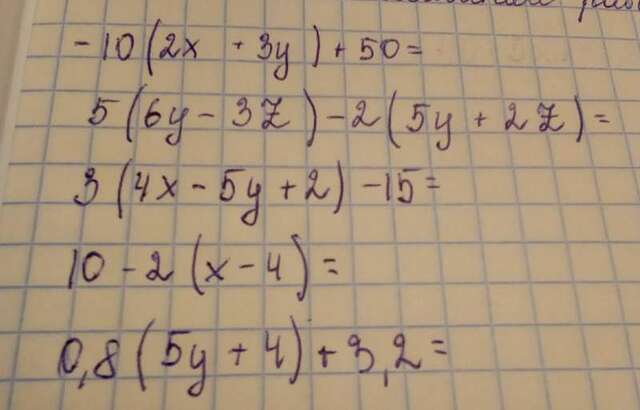 -10(2x + 3y) + 50 =
5(6y - 3z) - 2(5y + 2z) =
3(4x - 5y + 2) - 15 =
10 - 2(x - 4) =
0,8(5y + 4) + 3,2 =